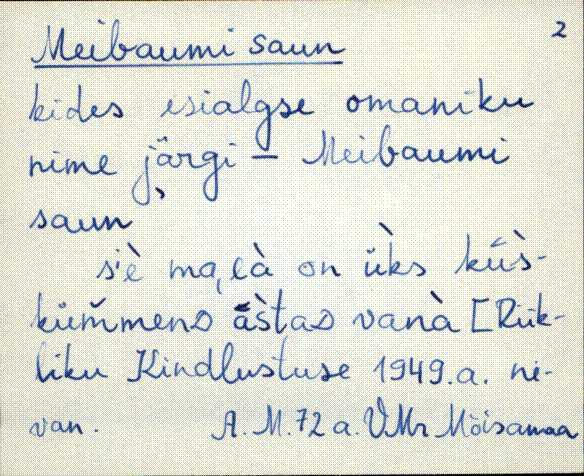 2
Meibaumi saun
kides esialgse omaniku
nime järgi – Meibaumi
saun
s'è ma,eà on üks kǜs-
kǜm̆menD ästaD vanà [Riik-
liku Kindlustuse 1949.a. ni-
van. A.M. 72 a. VMr Mõisamaa